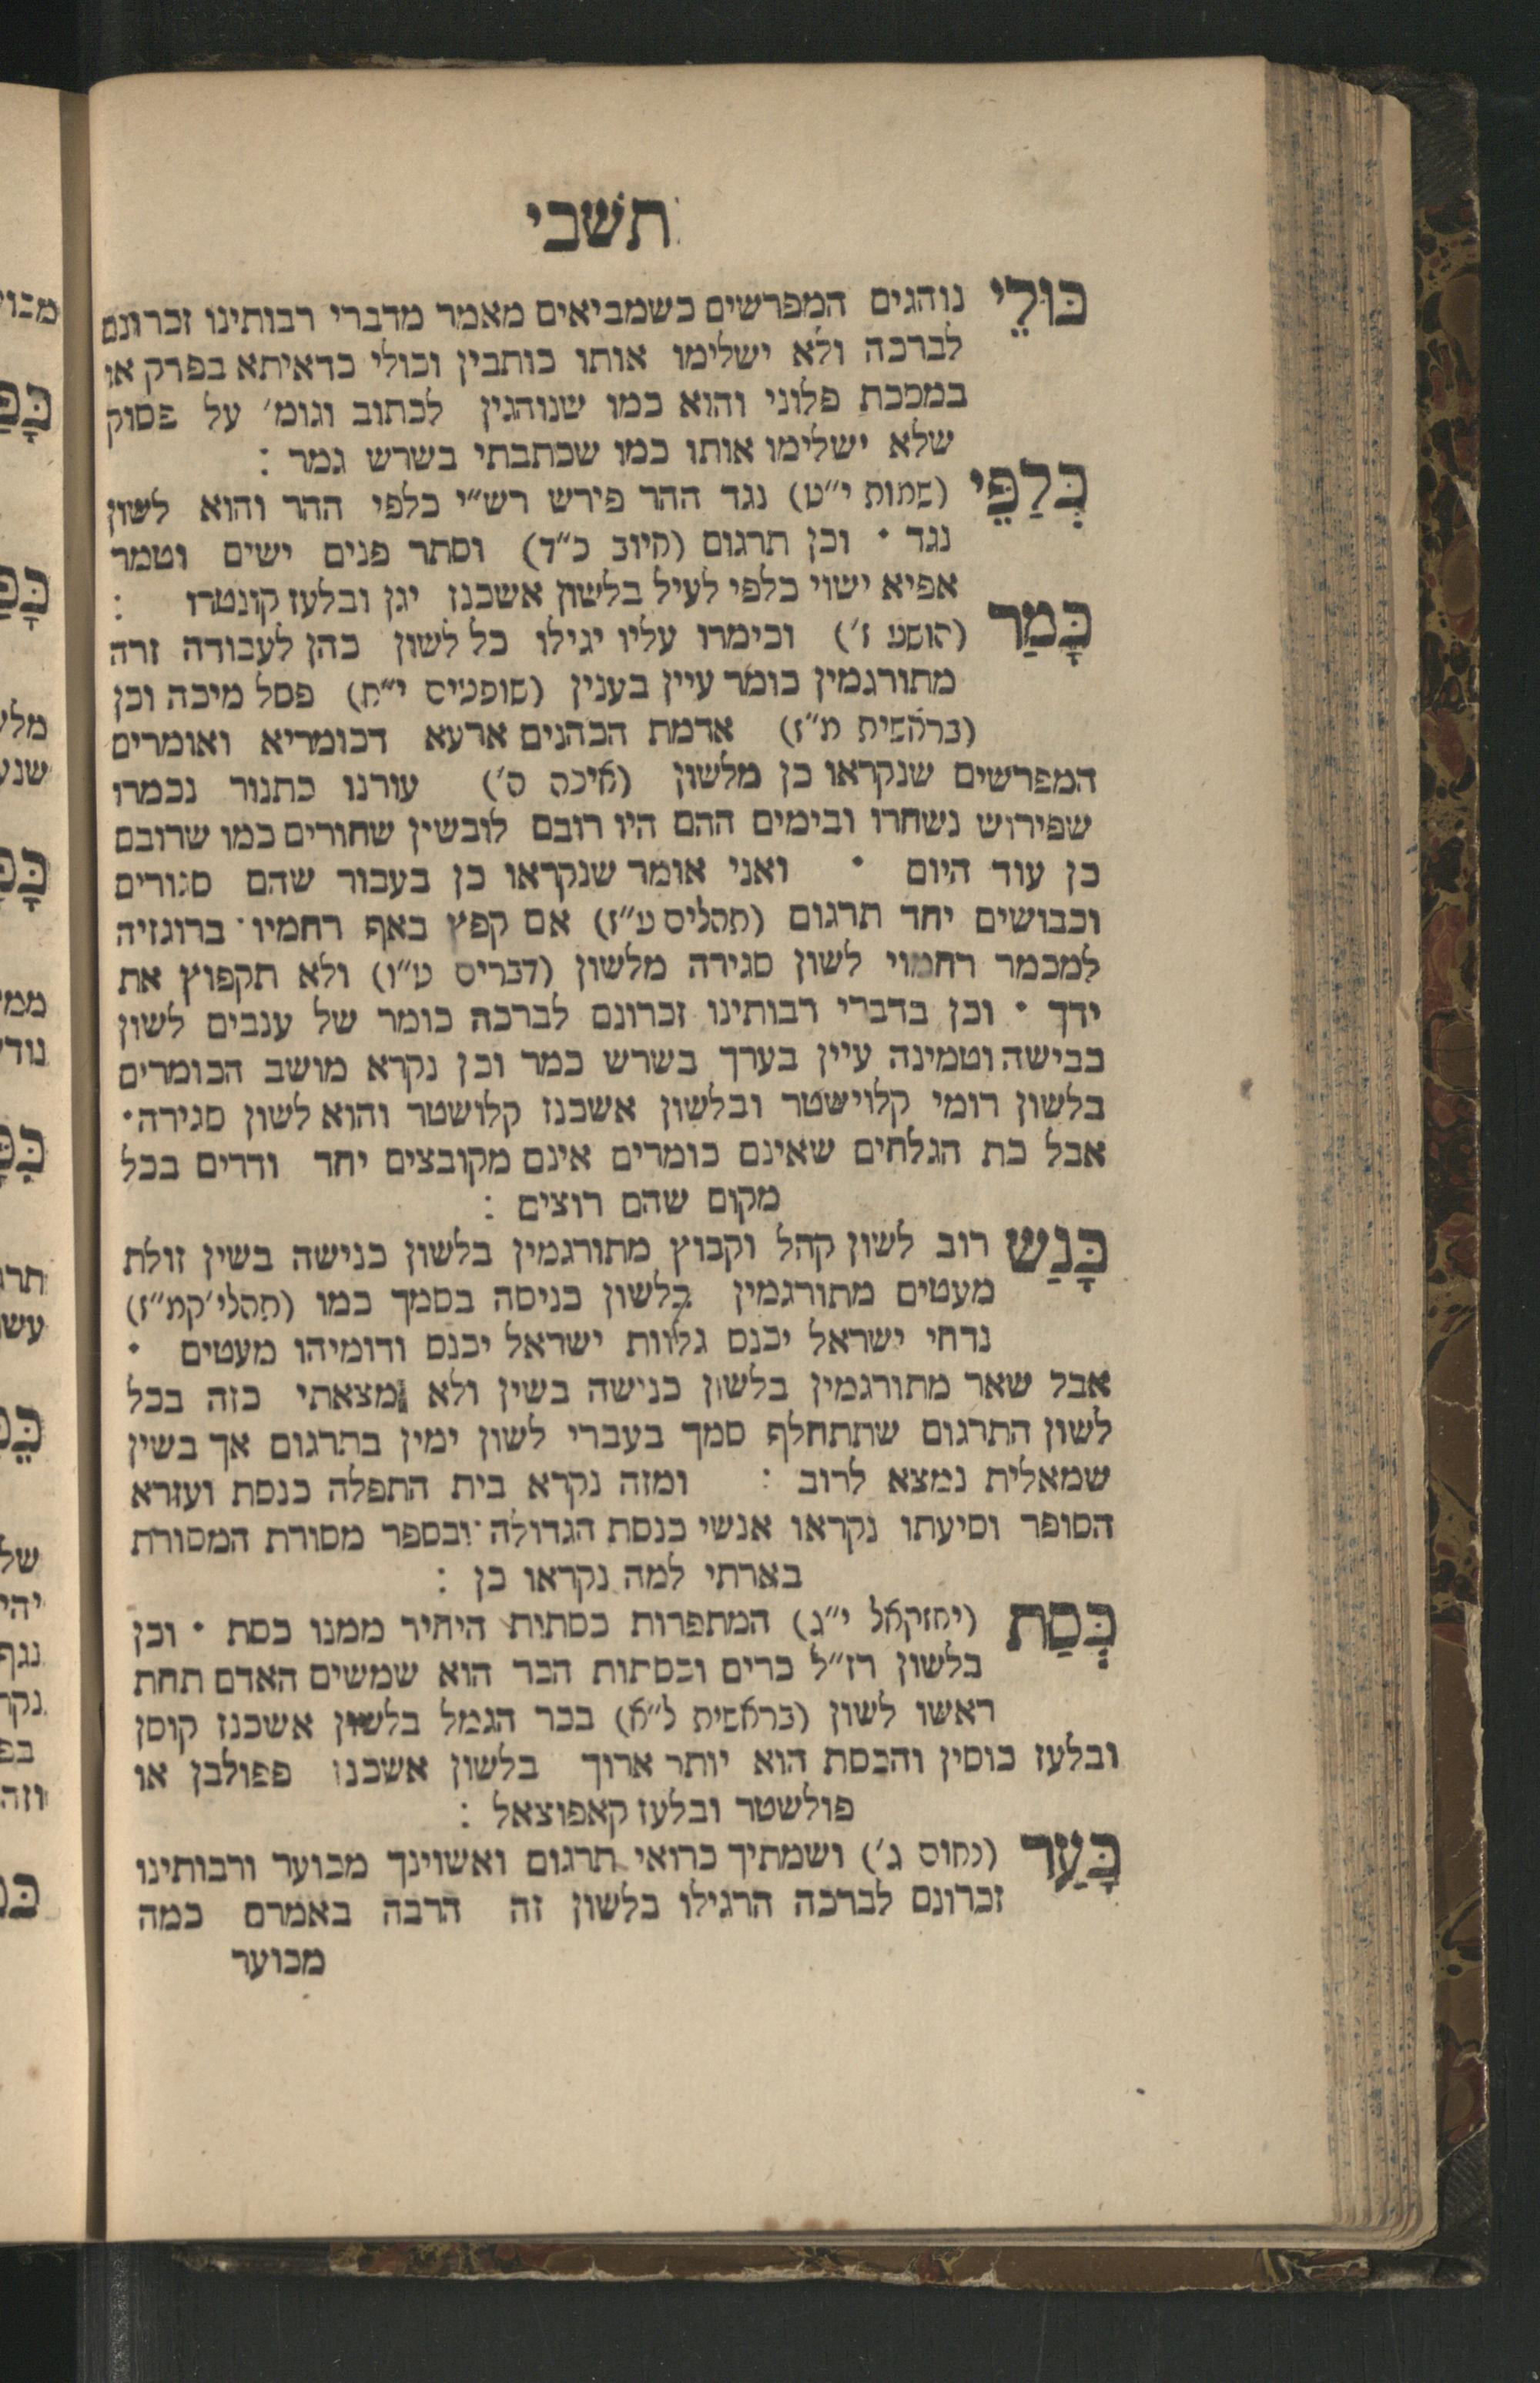 תשבי
כּוּלֵי נוהגים המפרשים כשמביאים מאמר מדברי רבותינו זכרונם
לברכה ולא ישלימו אותו כותבין וכולי כדאיתא בפרק או
במסכת פלוני והוא כמו שנוהגין לכתוב וגומ׳ על פסוק
שלא ישלימו אותו כמו שכתבתי בשרש גמר :
כְּלַפֵּי (שמות י״ט) נגד ההר פירש רש״י כלפי ההר והוא לשון
נגד • וכן תרגום (איוב כ״ד) וסתר פנים ישים וטמר
אפיא ישוי כלפי לעיל בלשון אשכנז יגן ובלעז קונטרו :
כָּמַר (הושע ז׳) וכימרו עליו יגילו כל לשון כהן לעבודה זרה
מתורגמין כומר עיין בענין (שופטים י״ח) פסל מיכה וכן
(בראשית מ״ז) אדמת הכהנים ארעא דכומריא ואומרים
המפרשים שנקראו כן מלשון (איכה ה׳) עורנו כתנור נכמרו
שפירוש נשחרו ובימים ההם היו רובם לובשין שחורים כמו שרובם
כן עוד היום • ואני אומר שנקראו כן בעבור שהם סגורים
וכבושים יחד תרגום (תהלים ע״ז) אם קפץ באף רחמיו ברוגזיה
למכמר רחמוי לשון סגירה מלשון (דברים ט״ו) ולא תקפוץ את
ידך • וכן בדברי רבותינו זכרונם לברכה כומר של ענבים לשון
כבישה וטמינה עיין בערך בשרש כמר וכן נקרא מושב הכומרים
בלשון רומי קלוישטר ובלשון אשכנז קלושטר והוא לשון סגירה•
אבל כת הגלחים שאינם כומרים אינם מקובצים יחד ודרים בכל
מקום שהם רוצים :
כָּנַשׁ רוב לשון קהל וקבוץ מתורגמין בלשון כנישה בשין זולת
מעטים מתורגמין בלשון כניסה בסמך כמו (תהלי׳ קמ״ז)
נדחי ישראל יכנס גלוות ישראל יכנס ודומיהו מעטים •
אבל שאר מתורגמין בלשון כנישה בשין ולא מצאתי כזה בכל
לשון התרגום שתתחלף סמך בעברי לשון ימין בתרגום אך בשין
שמאלית נמצא לרוב : ומזה נקרא בית התפלה כנסת ועזרא
הסופר וסיעתו נקראו אנשי כנסת הגדולה ובספר מסורת המסורת
בארתי למה נקראו כן :
כְּסַת (יחזקאל י״ג) המתפרות כסתית היחיד ממנו כסת • וכן
בלשון רז״ל כרים וכסתות הכר הוא שמשים האדם תחת
ראשו לשון (בראשית ל״א) בכר הגמל בלשון אשכנז קוסן
ובלעז כוסין והכסת הוא יותר ארוך בלשון אשכנז פפולבן או
פולשטר ובלעז קאפוצאל :
כָּעַר (נחום ג׳) ושמתיך כרואי תרגום ואשוינך מכוער ורבותינו
זכרונם לברכה הרגילו בלשון זה הרבה באמרם כמה
מכוער